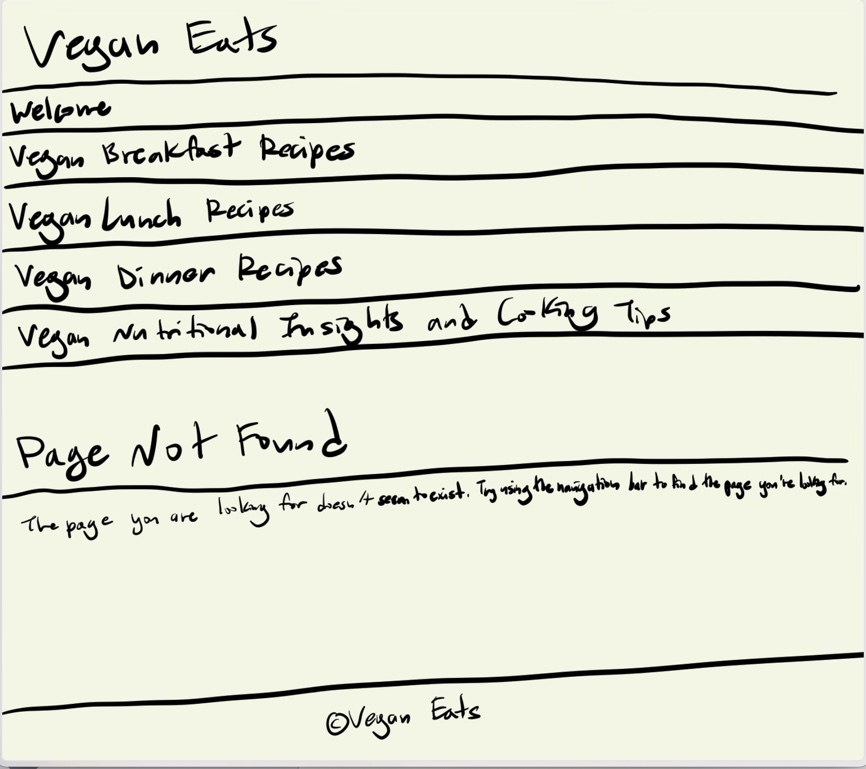 Vegan Eats
Welcome
Vegan Breakfast Recipes
Vegan Lunch Recipes
Vegan Dinner Recipes
Vegan Nutritional Insights and Cooking Tips
Page Not Found
The page you are looking for doesn't seem to exist. Try using the navigation bar to find the page you're looking for.
©Vegan Eats